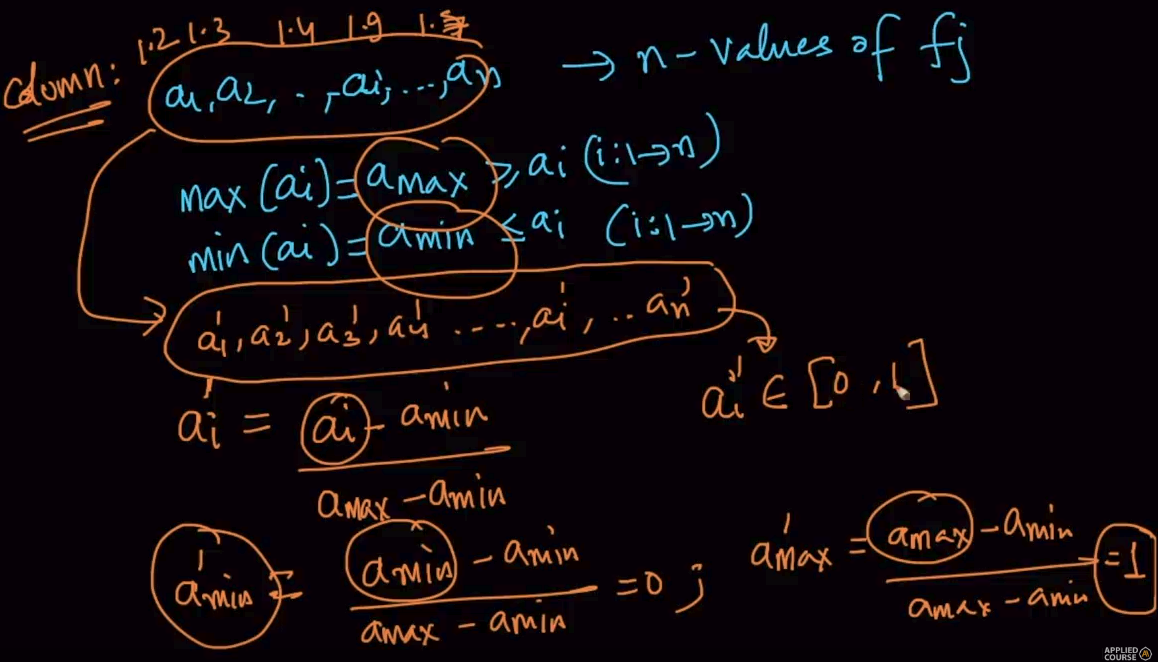 1.2 1.3 1.4 1.9 1.
Column: a1, a2, . , , ai, ..., an → n-values of fj
max (ai) = amax ≥ ai (i:1→n)
min (ai) = amin ≤ ai (i:1→n)
a1', a2', a3', a4' ...., ai', .. an'
ai' ∈ [0, 1]
ai' = ai - amin
amax - amin
amin' = amin - amin = 0 ; amax' = amax - amin = 1
amax - amin amax - amin
APPLIED
COURSE